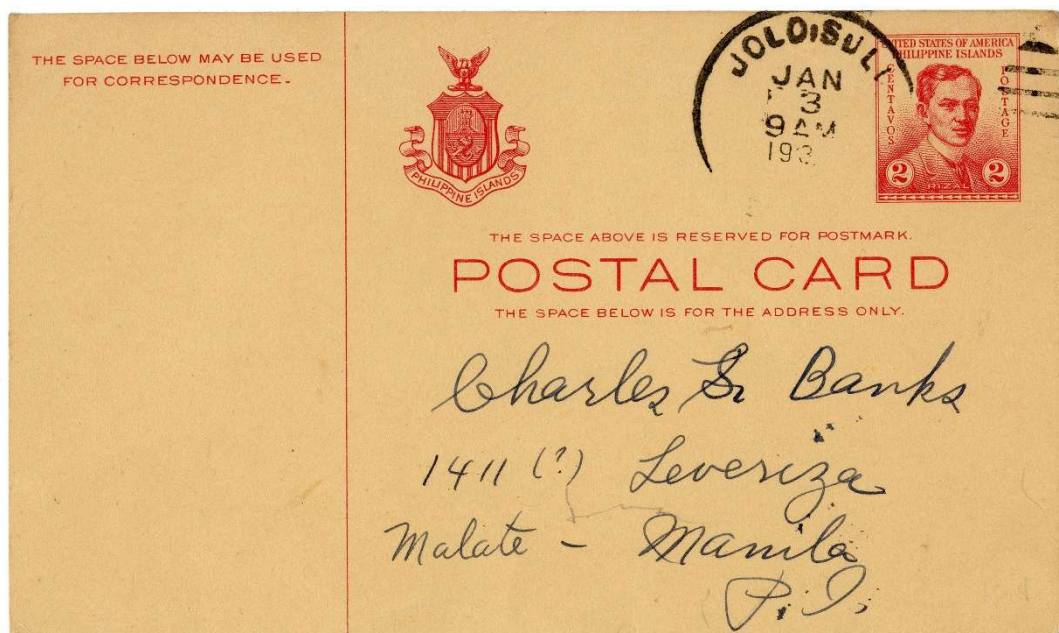 THE SPACE BELOW MAY BE USED
FOR CORRESPONDENCE.
PHILIPPINE ISLANDS
JOLO, SULU
JAN
3
9 AM
193
UNITED STATES OF AMERICA
PHILIPPINE ISLANDS
CENTAVOS
POSTAGE
2 RIZAL 2
THE SPACE ABOVE IS RESERVED FOR POSTMARK.
POSTAL CARD
THE SPACE BELOW IS FOR THE ADDRESS ONLY.
Charles S. Banks
1411 (?) Leveriza
Malate - Manila
P. I.